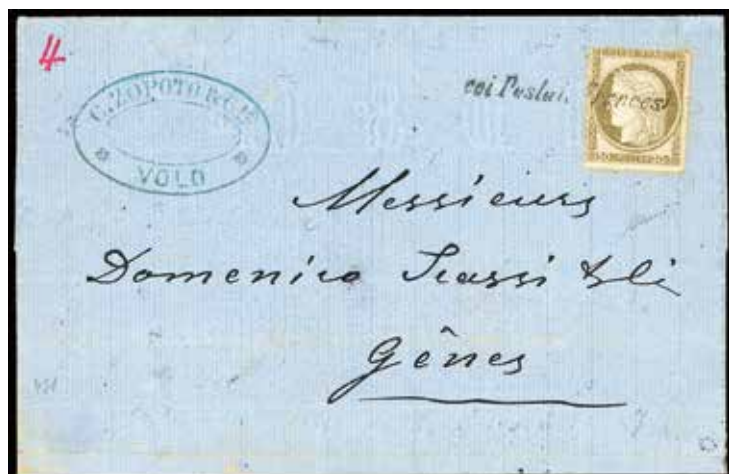 4
C. ZOPOTO & Cie
VOLO
coi Postali Francesi
Messieurs
Domenico Scassi & fli
Gênes